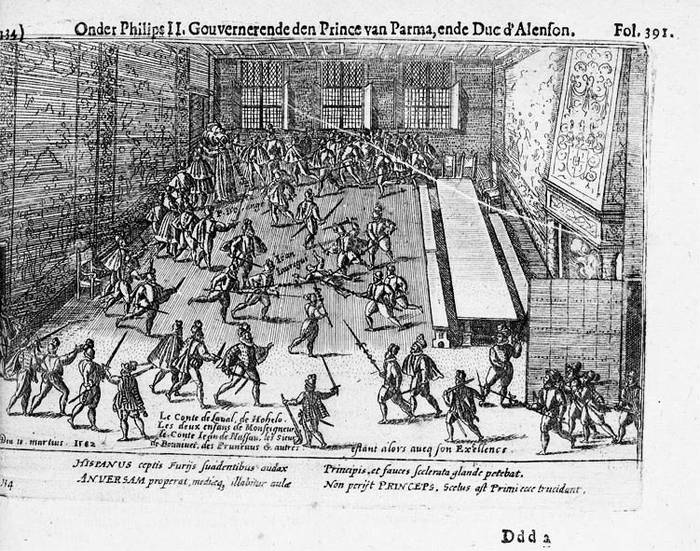 134)
Onder Philips II. Gouvernerende den Prince van Parma, ende Duc d'Alenson.
Fol. 391.
P. d'Orange
Iean
Iauregui
Le Conte de Laual, de Hohelo.
Les deux enfans de Monseigneur
le Conte Iean de Nassau, les Sieurs
De Bonniuet, des Pruneaus & autres
estant alors aueq son Exellence
martius. 1582
HISPANUS ceptis Furijs suadentibus audax
ANVERSAM properat, mediæq, illabitur aulæ
Principis, et fauces scelerata glande petebat.
Non perijt PRINCEPS. Scelus ast Primi ecce trucidant.
Ddd 2